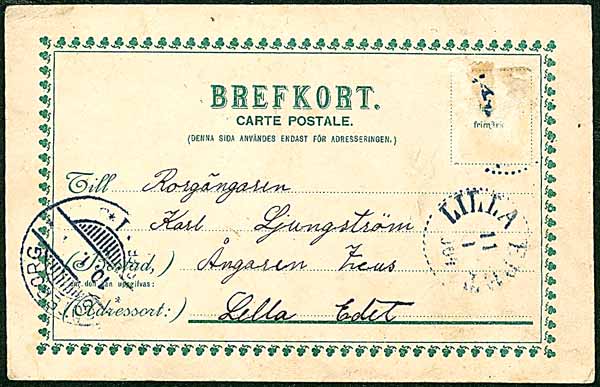 BREFKORT.
CARTE POSTALE.
(DENNA SIDA ANVÄNDES ENDAST FÖR ADRESSERINGEN.)
frimärke
Till Rorgängaren
Karl Ljungström
(Bostad,) Ångaren Zeus
när den kan uppgifvas:
(Adressort:) Lilla Edet
LILLA EDET
11
1